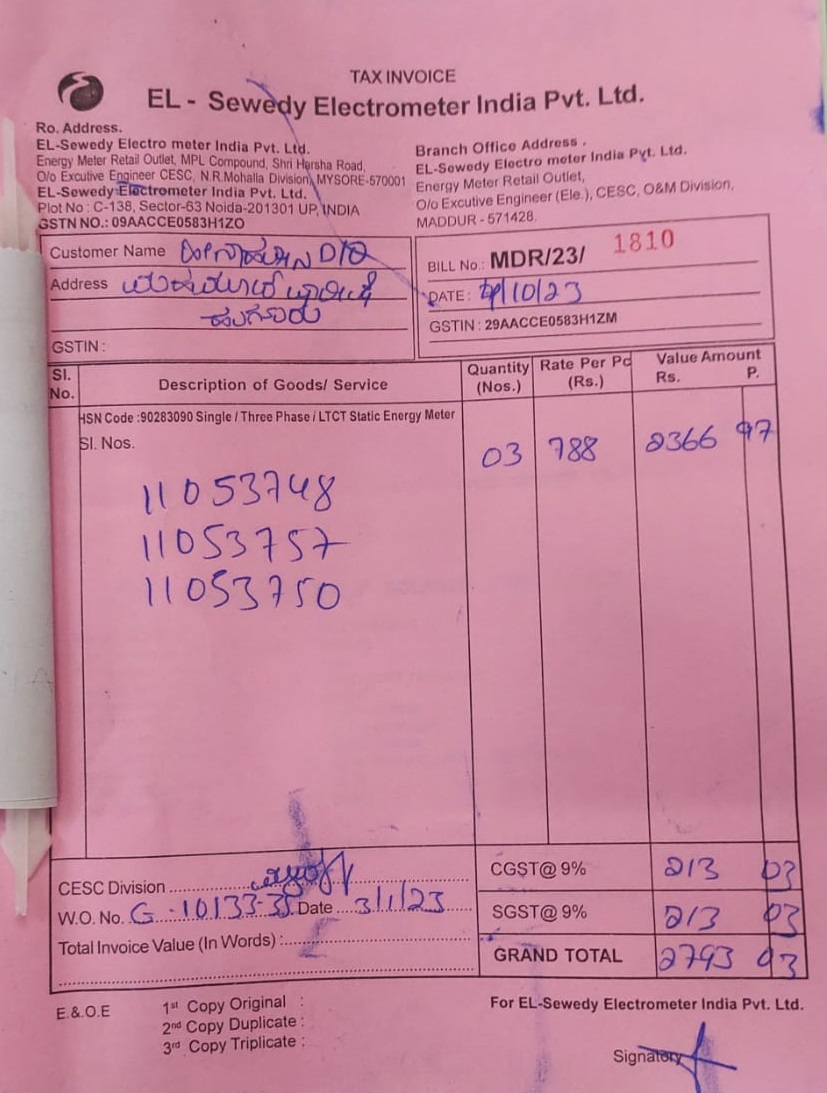 TAX INVOICE
EL - Sewedy Electrometer India Pvt. Ltd.
Ro. Address.
EL-Sewedy Electro meter India Pvt. Ltd.
Energy Meter Retail Outlet, MPL Compound, Shri Harsha Road,
O/o Excutive Engineer CESC, N.R.Mohalla Division, MYSORE-570001
EL-Sewedy Electrometer India Pvt. Ltd.
Plot No : C-138, Sector-63 Noida-201301 UP, INDIA
GSTN NO.: 09AACCE0583H1ZO
Branch Office Address .
EL-Sewedy Electro meter India Pvt. Ltd.
Energy Meter Retail Outlet,
O/o Excutive Engineer (Ele.), CESC, O&M Division,
MADDUR - 571428.
Customer Name
Address
GSTIN :
BILL No.: MDR/23/ 1810
DATE : /10/23
GSTIN : 29AACCE0583H1ZM
Sl. No. Description of Goods/ Service Quantity (Nos.) Rate Per Pc (Rs.) Value Amount Rs. P.
HSN Code :90283090 Single / Three Phase / LTCT Static Energy Meter
Sl. Nos. 03 788 2366 97
11053748
11053757
11053750
CESC Division
W.O. No. G-10133-35 Date 3/1/23
Total Invoice Value (In Words) :
CGST@ 9% 213 03
SGST@ 9% 213 03
GRAND TOTAL 2793 03
E.&.O.E
1st Copy Original :
2nd Copy Duplicate :
3rd Copy Triplicate :
For EL-Sewedy Electrometer India Pvt. Ltd.
Signatory